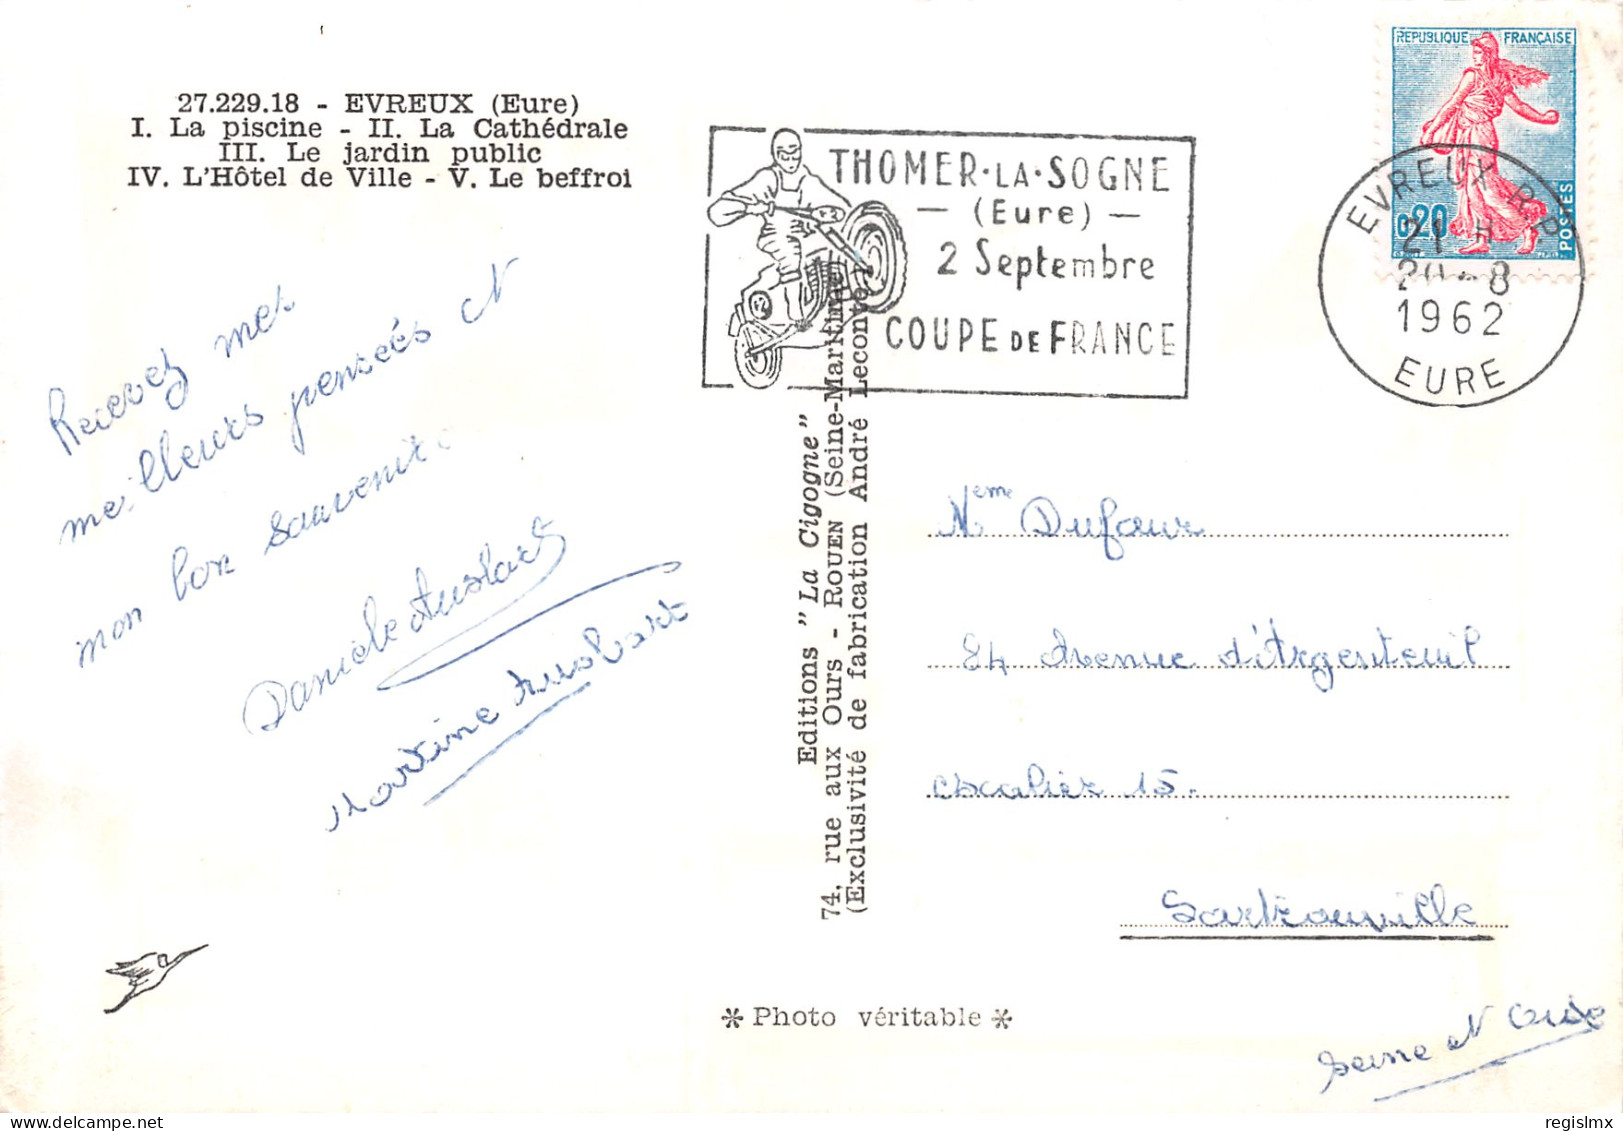 27.229.18 - EVREUX (Eure)
I. La piscine - II. La Cathédrale
III. Le jardin public
IV. L'Hôtel de Ville - V. Le beffroi
Recevez mes
meilleurs pensées et
mon bon souvenir.
Danièle
Martine
THOMER-LA-SOGNE
- (Eure) -
2 Septembre
COUPE DE FRANCE
REPUBLIQUE FRANÇAISE
0,20
POSTES
EVREUX R.P.
21 H
20-8
1962
EURE
Editions "La Cigogne"
74, rue aux Ours - ROUEN (Seine-Maritime)
(Exclusivité de fabrication André Leconte)
Meme Dufour
84 Avenue d'Argenteuil
escalier 15.
Sartrouville
Seine et Oise
* Photo véritable *
© regislmx